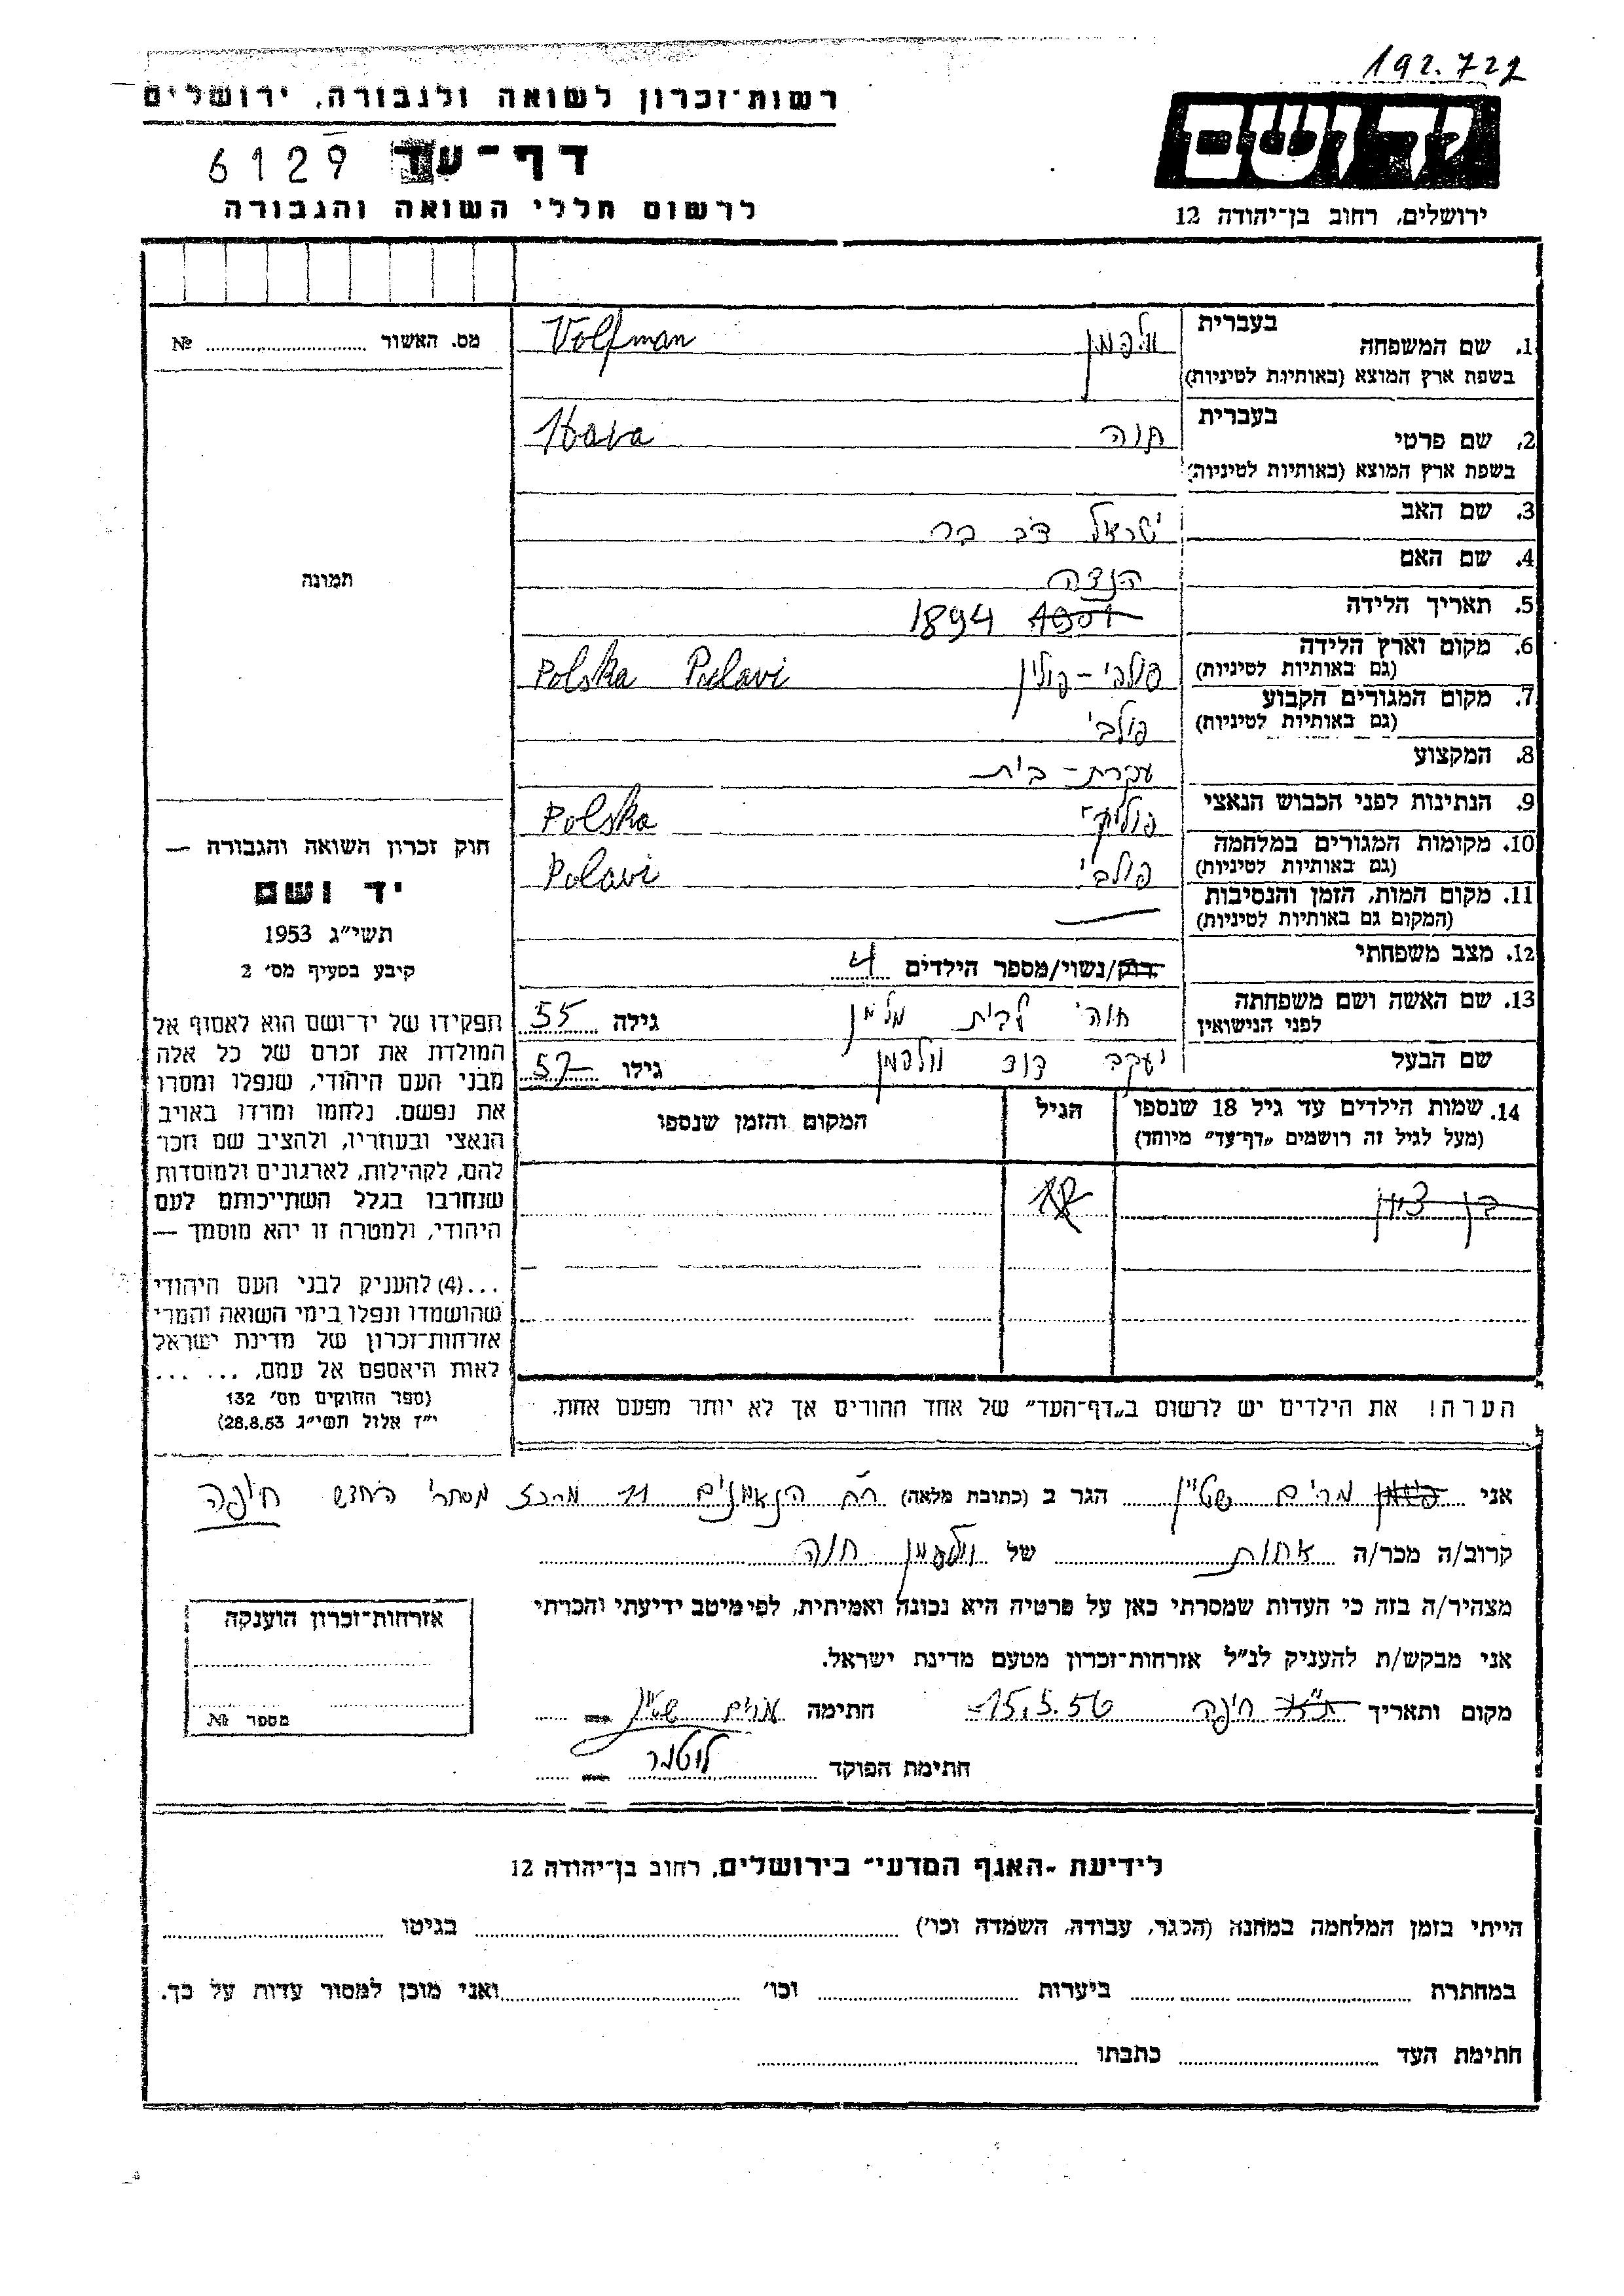 192.727
רשות־זכרון לשואה ולגבורה, ירושלים
יד ושם
דף־עד 6129
לרשום חללי השואה והגבורה
ירושלים, רחוב בן־יהודה 12
מס. האשור № ........
תמונה
חוק זכרון השואה והגבורה —
יד ושם
תשי״ג 1953
קיבע בסעיף מס׳ 2
תפקידו של יד־ושם הוא לאסוף אל
המולדת את זכרם של כל אלה
מבני העם היהודי, שנפלו ומסרו
את נפשם, נלחמו ומרדו באויב
הנאצי ובעוזריו, ולהציב שם וזכר
להם, לקהילות, לארגונים ולמוסדות
שנחרבו בגלל השתייכותם לעם
היהודי, ולמטרה זו יהא מוסמך —
...(4) להעניק לבני העם היהודי
שהושמדו ונפלו בימי השואה והמרי
אזרחות־זכרון של מדינת ישראל
לאות היאספם אל עמם. ... ...
(ספר החוקים מס׳ 132
י״ז אלול תשי״ג 28.8.53)
1. שם המשפחה בעברית וולפמן Volfman
בשפת ארץ המוצא (באותיות לטיניות)
2. שם פרטי בעברית חוה Hava
בשפת ארץ המוצא (באותיות לטיניות)
3. שם האב ישראל דב בר
4. שם האם הנדה
5. תאריך הלידה 1894
6. מקום וארץ הלידה פולבי - פולין Polska Pulavi
(גם באותיות לטיניות)
7. מקום המגורים הקבוע פולבי
(גם באותיות לטיניות)
8. המקצוע עקרת - בית
9. הנתינות לפני הכבוש הנאצי פולנית Polska
10. מקומות המגורים במלחמה פולבי Polavi
(גם באותיות לטיניות)
11. מקום המות, הזמן והנסיבות —
(המקום גם באותיות לטיניות)
12. מצב משפחתי רווק/נשוי/מספר הילדים 4
13. שם האשה ושם משפחתה לפני הנישואין חוה לבית מלמן גילה 55
שם הבעל יעקב דוד וולפמן גילו 57
14. שמות הילדים עד גיל 18 שנספו הגיל המקום והזמן שנספו
(מעל לגיל זה רושמים „דף־עד״ מיוחד)
בן ציון
הערה! את הילדים יש לרשום ב„דף־העד״ של אחד ההורים אך לא יותר מפעם אחת.
אני מרים שטיין הגר ב (כתובת מלאה) רח הנאמנים 11 מרכז מסחרי החדש חיפה
קרוב/ה מכר/ה אחות של וולפמן חוה
מצהיר/ה בזה כי העדות שמסרתי כאן על פרטיה היא נכונה ואמיתית, לפי מיטב ידיעתי והכרתי
אני מבקש/ת להעניק לנ״ל אזרחות־זכרון מטעם מדינת ישראל.
מקום ותאריך חיפה 15.5.56 חתימה מרים שטיין
חתימת הפוקד
אזרחות־זכרון הוענקה
מספר №
לידיעת „האגף המדעי״ בירושלים, רחוב בן־יהודה 12
הייתי בזמן המלחמה במחנה (הסגר, עבודה, השמדה וכו׳) ........ בגיטו ........
במחתרת ........ ביערות ........ וכו׳ ........ ואני מוכן למסור עדות על כך.
חתימת העד ........ כתבתו ........